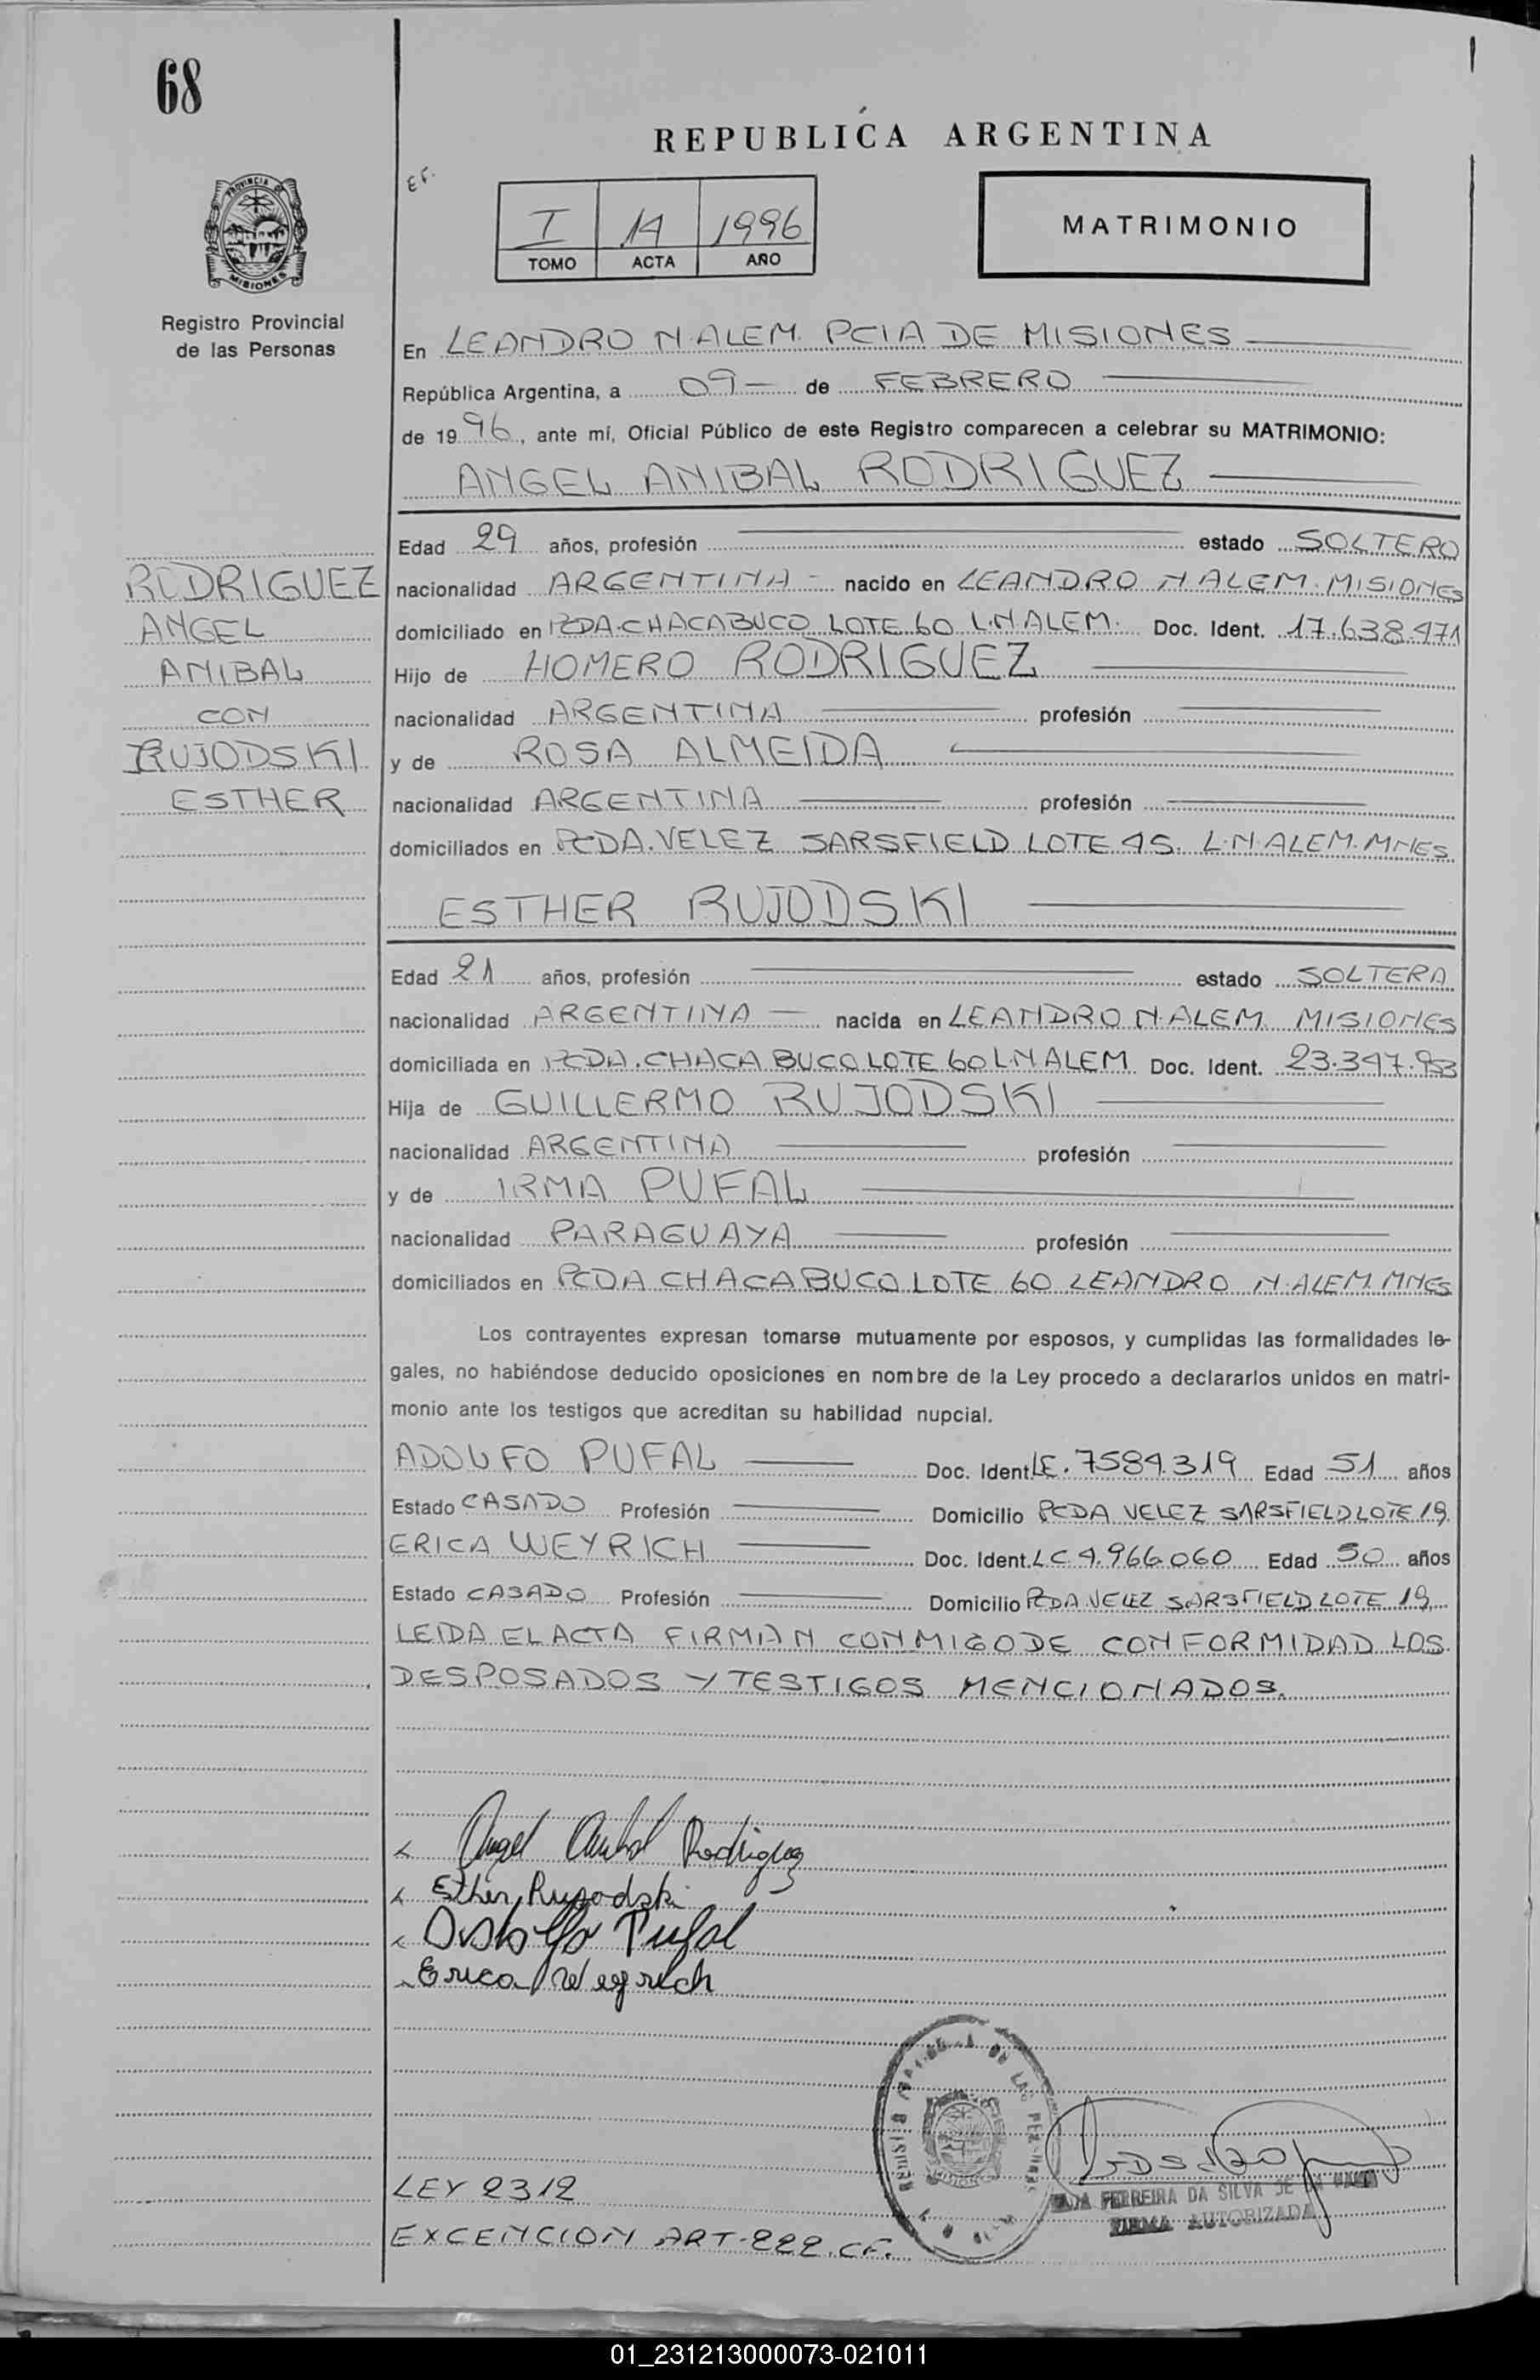 68
REPUBLICA ARGENTINA
E.F.
PROVINCIA DE
MISIONES
I 14 1996
TOMO ACTA AÑO
MATRIMONIO
Registro Provincial
de las Personas
En LEANDRO N. ALEM. PCIA DE MISIONES
República Argentina, a 09 - de FEBRERO
de 1996, ante mí, Oficial Público de este Registro comparecen a celebrar su MATRIMONIO:
ANGEL ANIBAL RODRIGUEZ
RODRIGUEZ
ANGEL
ANIBAL
CON
RUJODSKI
ESTHER
Edad 29 años, profesión estado SOLTERO
nacionalidad ARGENTINA - nacido en LEANDRO N. ALEM. MISIONES
domiciliado en PCDA. CHACABUCO LOTE 60 L.N ALEM. Doc. Ident. 17.638.471
Hijo de HOMERO RODRIGUEZ
nacionalidad ARGENTINA profesión
y de ROSA ALMEIDA
nacionalidad ARGENTINA profesión
domiciliados en PCDA. VELEZ SARSFIELD LOTE 45. L.N. ALEM. MNES
ESTHER RUJODSKI
Edad 21 años, profesión estado SOLTERA
nacionalidad ARGENTINA - nacida en LEANDRO N. ALEM MISIONES
domiciliada en PCDA. CHACABUCO LOTE 60 L.N ALEM Doc. Ident. 23.347.953
Hija de GUILLERMO RUJODSKI
nacionalidad ARGENTINA profesión
y de IRMA PUFAL
nacionalidad PARAGUAYA profesión
domiciliados en PCDA CHACABUCO LOTE 60 LEANDRO N. ALEM. MNES
Los contrayentes expresan tomarse mutuamente por esposos, y cumplidas las formalidades le-
gales, no habiéndose deducido oposiciones en nombre de la Ley procedo a declararlos unidos en matri-
monio ante los testigos que acreditan su habilidad nupcial.
ADOLFO PUFAL Doc. Ident LE. 7584.319 Edad 51 años
Estado CASADO Profesión Domicilio PCDA VELEZ SARSFIELD LOTE 19.
ERICA WEYRICH Doc. Ident. LC 4.966.060 Edad 50 años
Estado CASADO Profesión Domicilio PCDA VELEZ SARSFIELD LOTE 19
LEIDA EL ACTA FIRMAN CONMIGO DE CONFORMIDAD LOS
DESPOSADOS Y TESTIGOS MENCIONADOS.
Angel Anibal Rodriguez
Esther Rujodski
Adolfo Pufal
Erica Weyrich
FERREIRA DA SILVA DE
FIRMA AUTORIZADA
LEY 2312
EXCENCION ART. 222. CF.
01_231213000073-021011